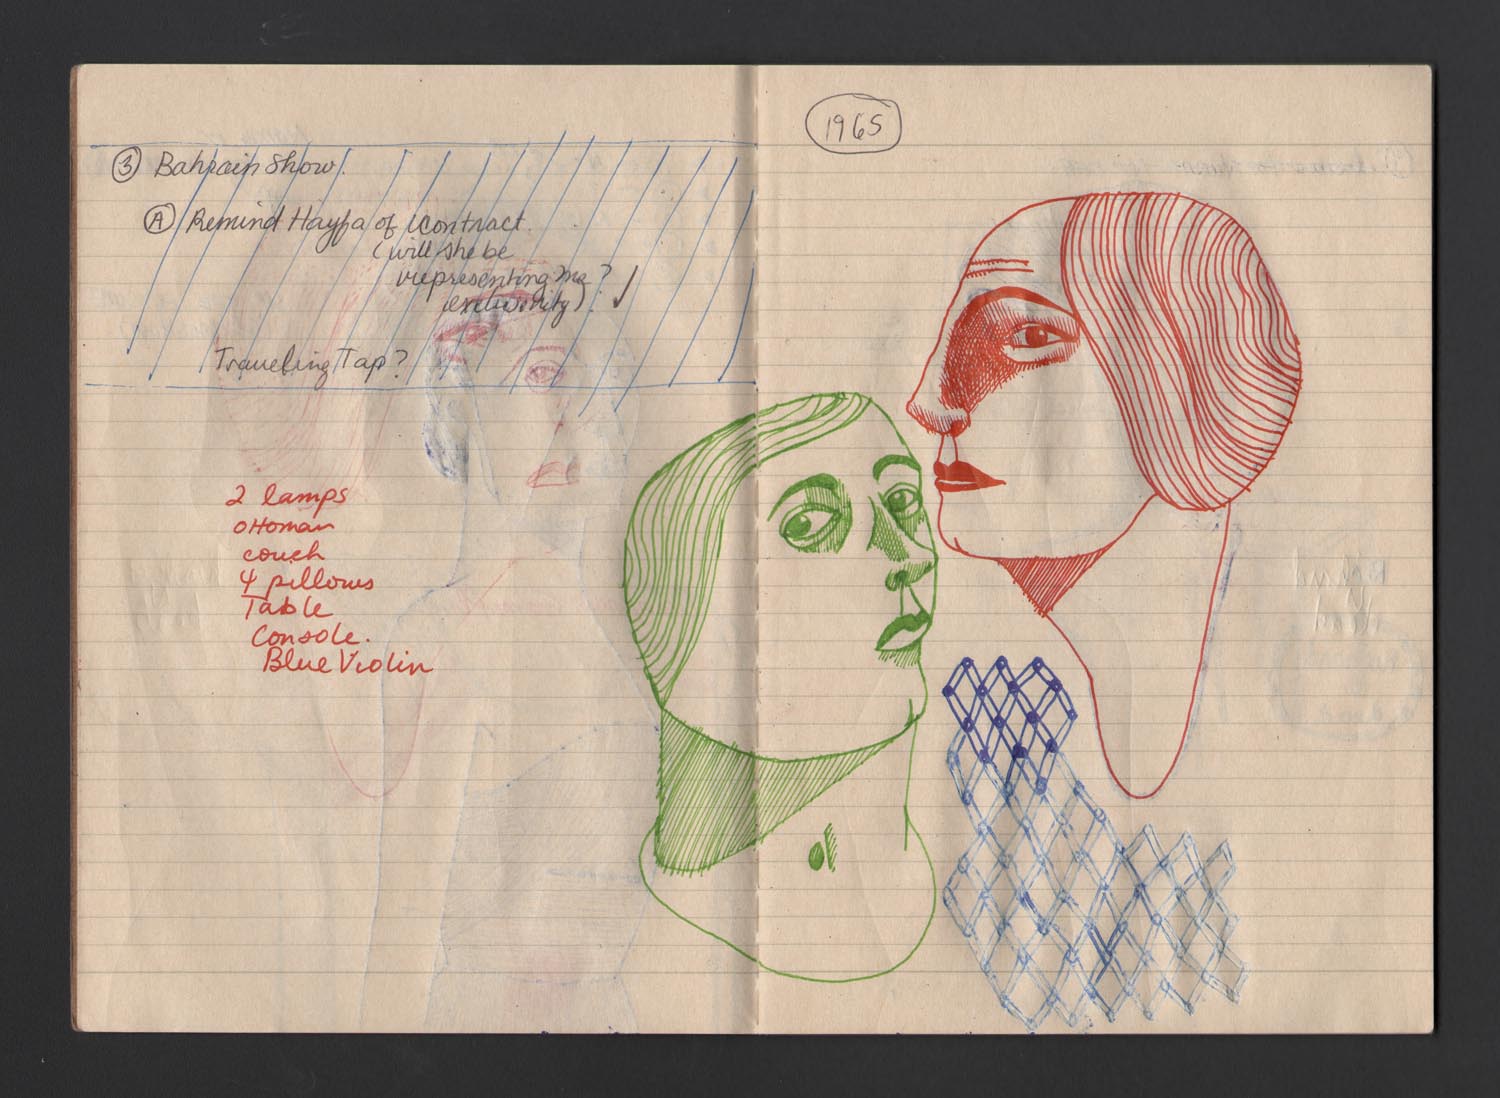 ③ Bahrain Show.
Ⓐ Remind Hayfa of contract.
(will she be
representing me ?
exclusivity)
Traveling Tap?
2 lamps
ottoman
couch
4 pillows
Table
Console.
Blue Violin
1965